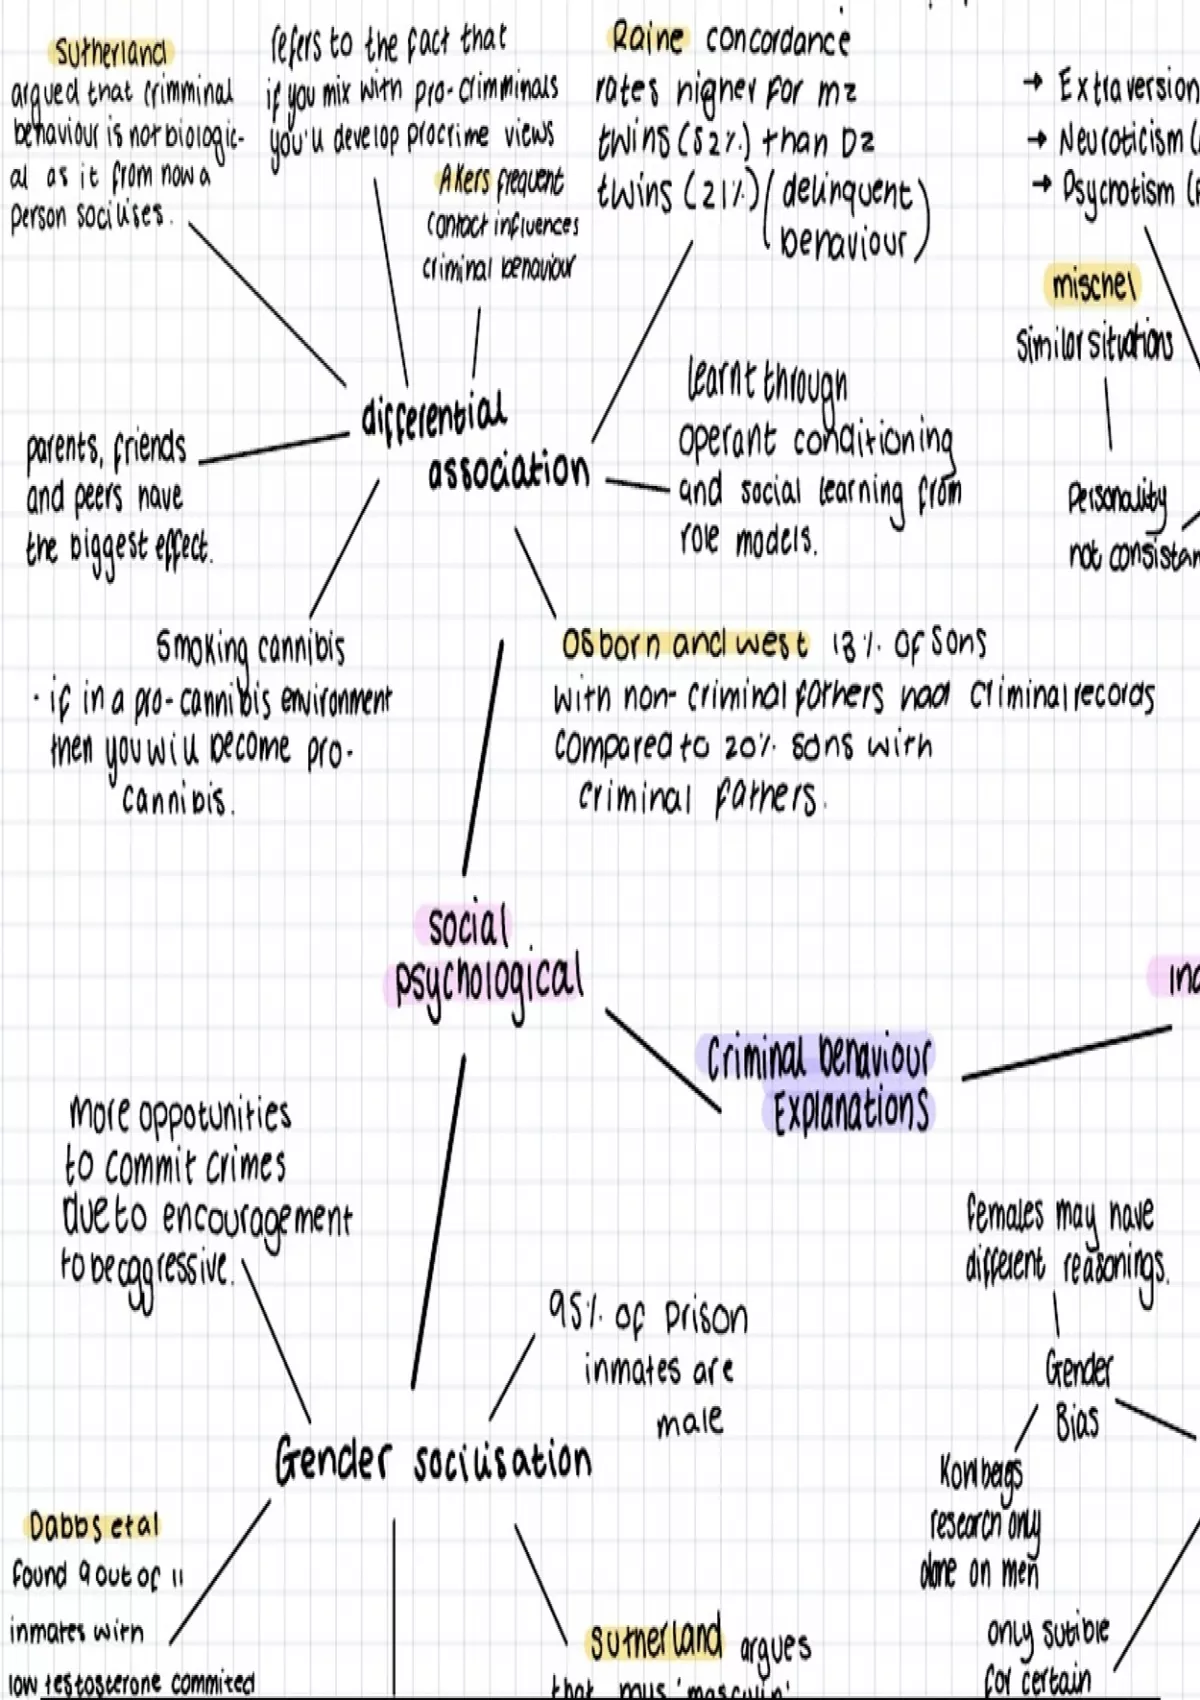 Sutherland
argued that crimminal
behaviour is not biologic-
al as it from how a
person socilises.
refers to the fact that
if you mix with pro-crimminals
you'll develop procrime views
Akers frequent
contact influences
criminal behaviour
Raine concordance
rates higher for mz
twins (52%) than Dz
twins (21%) (delinquent
behaviour)
→ Extraversion
→ Neuroticism (
→ Psychotism (
mischel
similar situations
Personality
not consistan
differential
association
parents, friends
and peers have
the biggest effect.
learnt through
operant conditioning
and social learning from
role models.
Smoking cannibis
· if in a pro-cannibis environment
then you will become pro-
cannibis.
Osborn and west 13% of sons
with non-criminal fathers had criminal records
compared to 20% sons with
criminal fathers.
social
psychological
Criminal behaviour
Explanations
Ind
more oppotunities
to commit crimes
due to encouragement
to be aggressive.
95% of prison
inmates are
male
Gender socilisation
females may have
different reasonings.
Gender
Bias
Kohlbergs
research only
done on men
only sutible
for certain
Dabbs et al
found 9 out of 11
inmates with
low testosterone commited
Sutherland argues
that mus 'masculin'